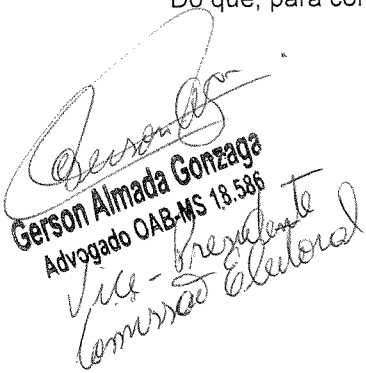 Do que, para con
Gerson
Gerson Almada Gonzaga
Advogado OAB-MS 18.586
Vice-Presidente
Comissão Eleitoral